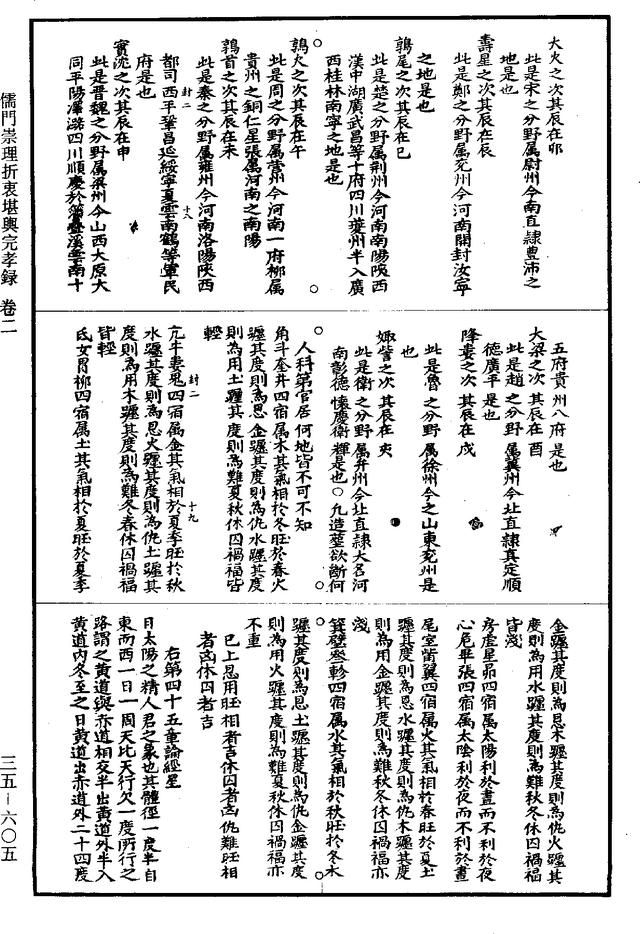 大火之次其辰在卯
此是宋之分野屬尉州今南直隸豊沛之
地是也
壽星之次其辰在辰
此是鄭之分野屬兖州今河南開封汝寧
之地是也
鶉尾之次其辰在巳
此是楚之分野属荆州今河南南陽陝西
漢中湖廣武昌等十府四川夔州半入廣
西桂林南寧之地是也
○
鶉火之次其辰在午
此是周之分野属雍州今河南一府柳属
貴州之銅仁星張属河南之南陽
鶉首之次其辰在未
此是秦之分野属雍州今河南洛陽陝西
封二 十八
都司西平鞏昌延綏寧夏雲南鶴等軍民
府是也
實沈之次其辰在申
此是晋魏之分野属梁州今山西大原大
同平陽澤潞四川順慶於叠溪雲南十
五府貴州八府是也
大梁之次其辰在酉
此是趙之分野屬冀州今北直隸真定順
德廣平是也
降婁之次其辰在戍
此是魯之分野属徐州今之山東兖州是
也
娵訾之次其辰在亥
此是衛之分野属并州今北直隸大名河
南彰德懷慶衛輝是也○九造塋欲斷何
○人科第官居何地皆不可不知
角斗奎井四宿属木其氣相於冬旺於春火
躔其度則為恩金躔其度則為仇水躔其度
則為用土躔其度則為難夏秋休囚禍福皆
輕
封二 十九
亢牛婁鬼四宿属金其氣相於夏季旺於秋
水躔其度則為恩火躔其度則為仇土躔其
度則為用木躔其度則為難冬春休囚禍福
皆輕
氐女胃柳四宿属土其氣相於夏旺於夏季
金躔其度則為恩木躔其度則為仇火躔其
度則為用水躔其度則為難秋冬休囚禍福
皆淺
房虚星昴四宿属太陽利於晝而不利於夜
心危畢張四宿属太陰利於夜而不利於晝
尾室觜翼四宿属火其氣相於春旺於夏土
躔其度則為恩水躔其度則為仇木躔其度
則為用金躔其度則為難秋冬休囚禍福亦
淺
箕壁參軫四宿属水其氣相於秋旺於冬木
躔其度則為恩土躔其度則為仇金躔其度
則為用火躔其度則為難夏秋休囚禍福亦
不重
已上恩用旺相者吉休囚者凶仇難旺相
者凶休囚者吉
右第四十五章論經星
日太陽之精人君之象也其體徑一度半自
東而西一日一周天比天行欠一度所行之
路謂之黄道與赤道相交半出黄道外半入
黄道内冬至之日黄道出赤道外二十四度
儒門崇理折衷堪輿完孝録 卷二
三五－六〇五